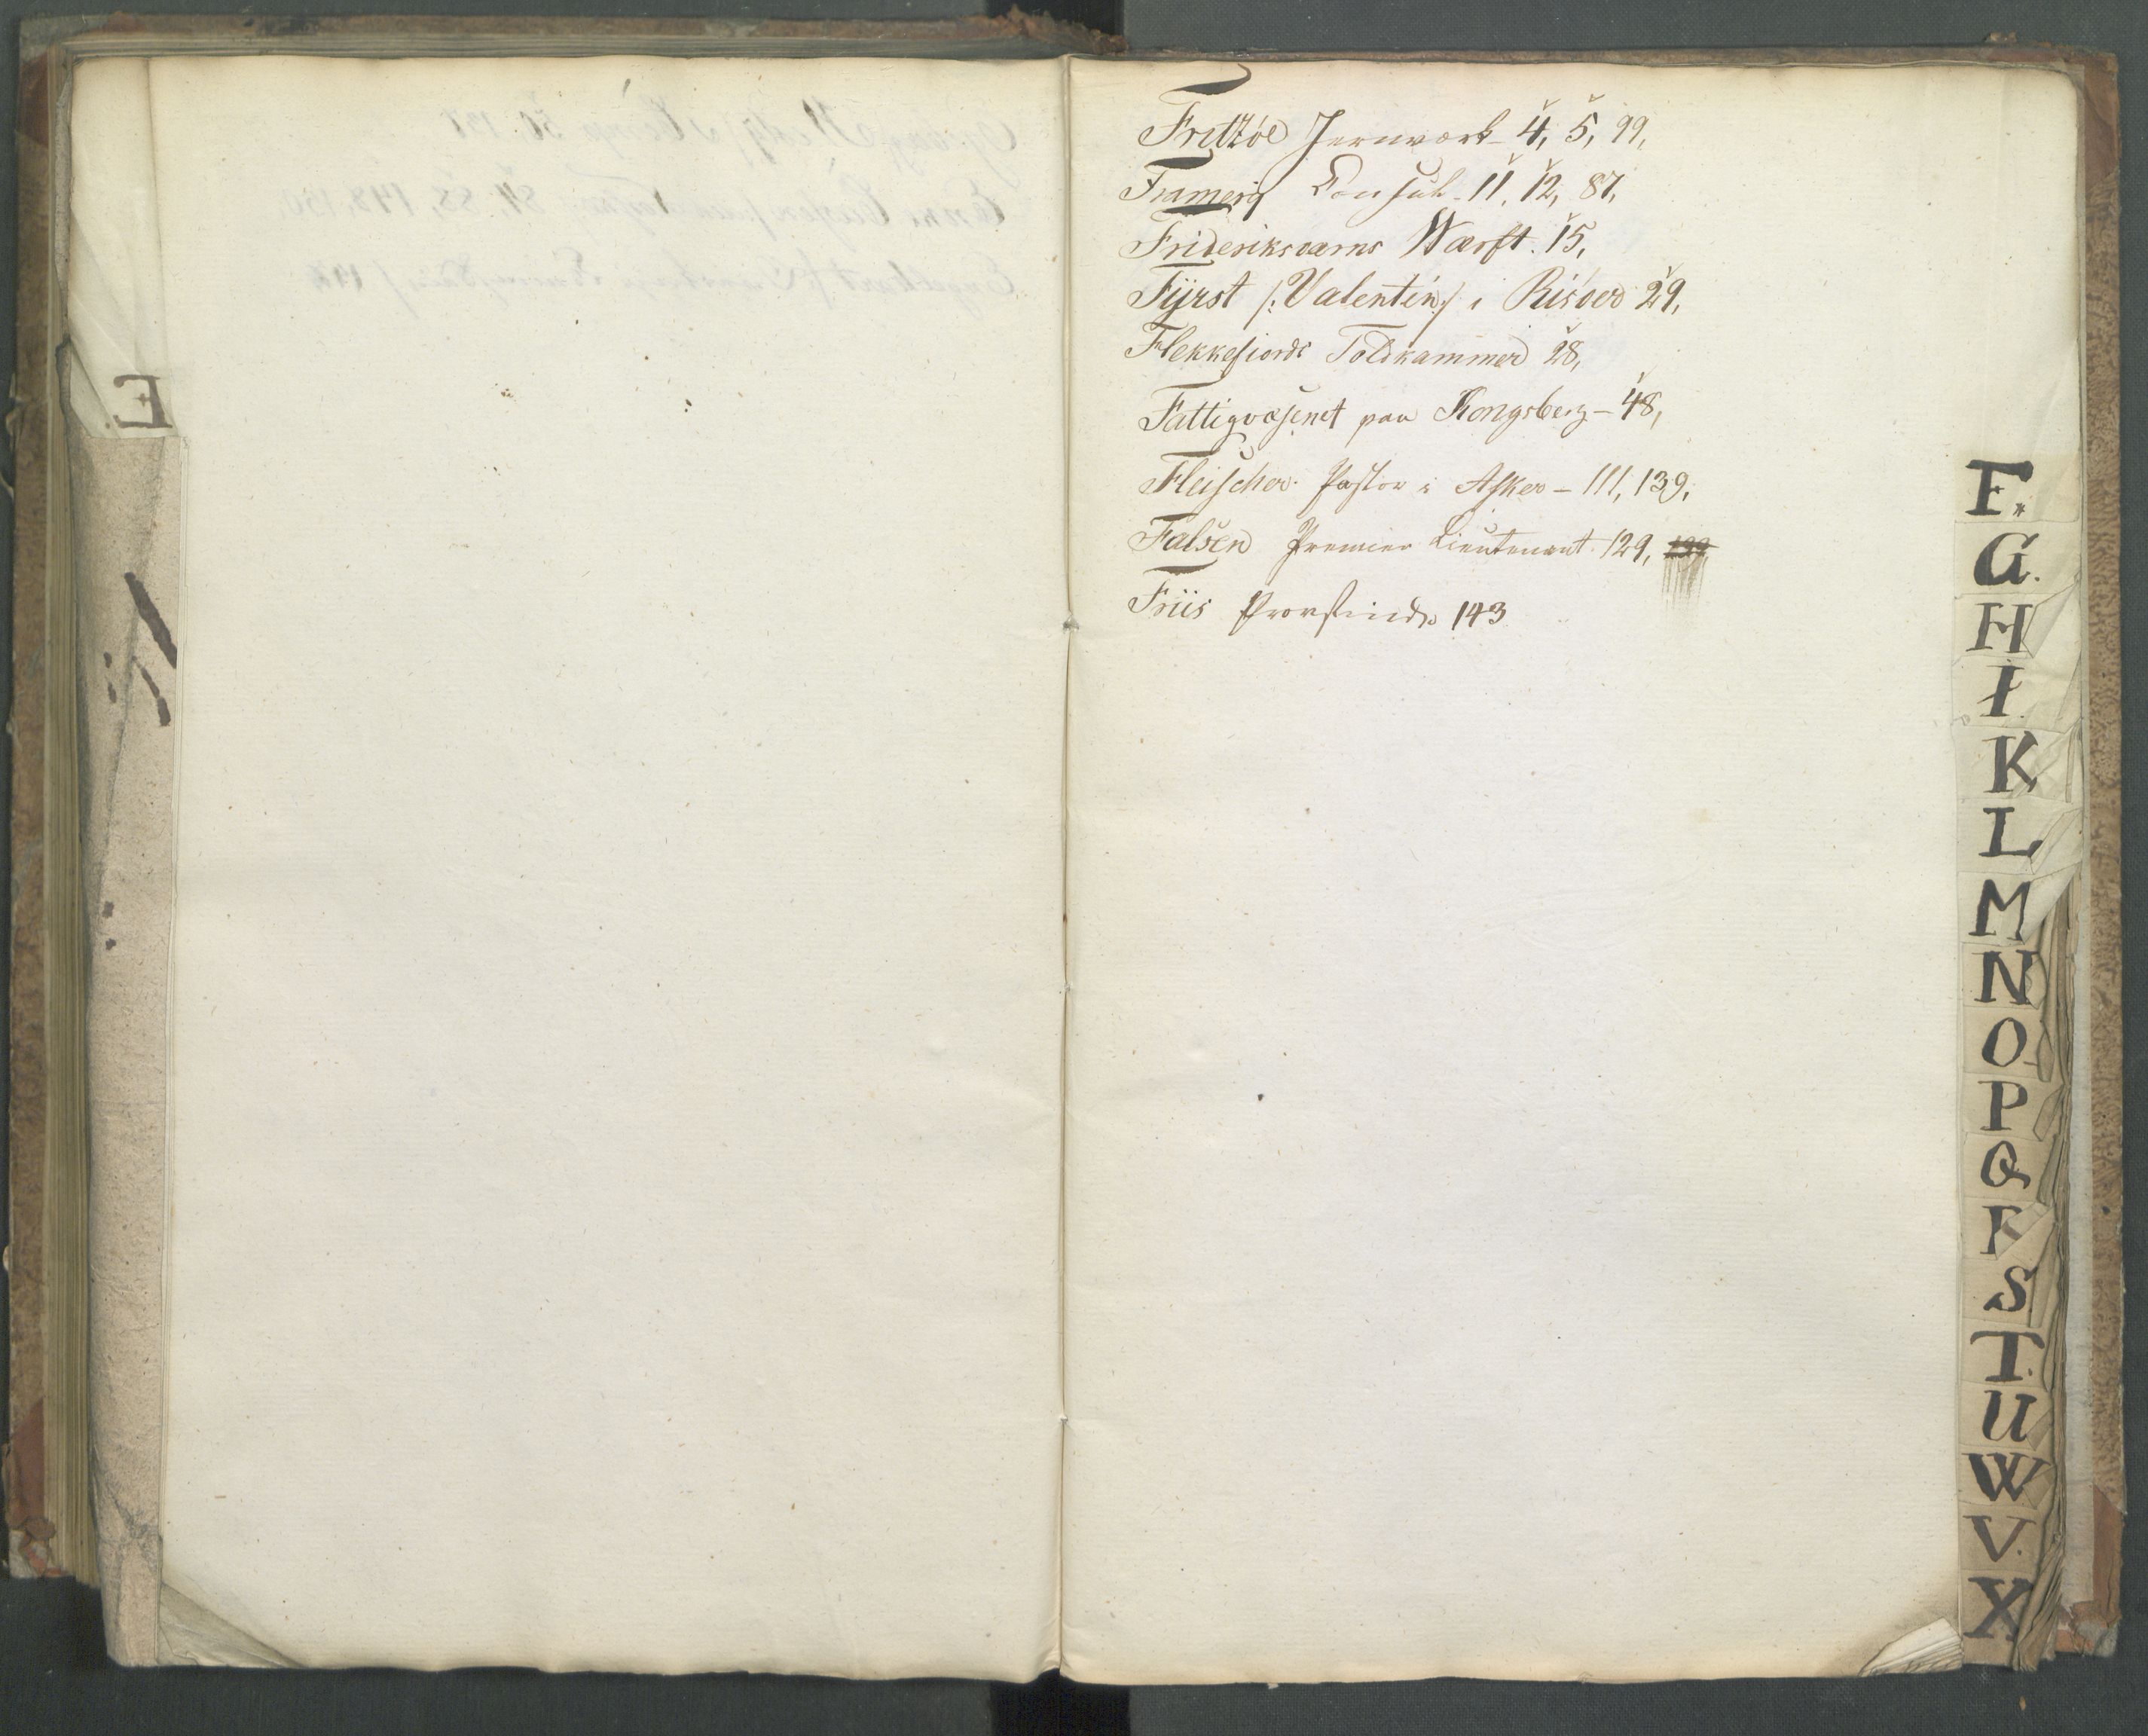 Fritzöe Jernværk - 4, 5, 99,
Framery Consul - 11, 12, 87,
Frideriksværns Wærft. 15,
Fürst /: Valentin :/ i Risöer 29,
Flekkefiords Toldkammer 28,
Fattigvæsenet paa Kongsberg - 48,
Fleischer. Pastor i Asker - 111, 139,
Falsen Premier Lieutenant. 129, 139,
Friis Provstinde 143
E.
F.
G.
H
I.
K
L
M
N
O
P
Q
S
T.
U
W
V.
X